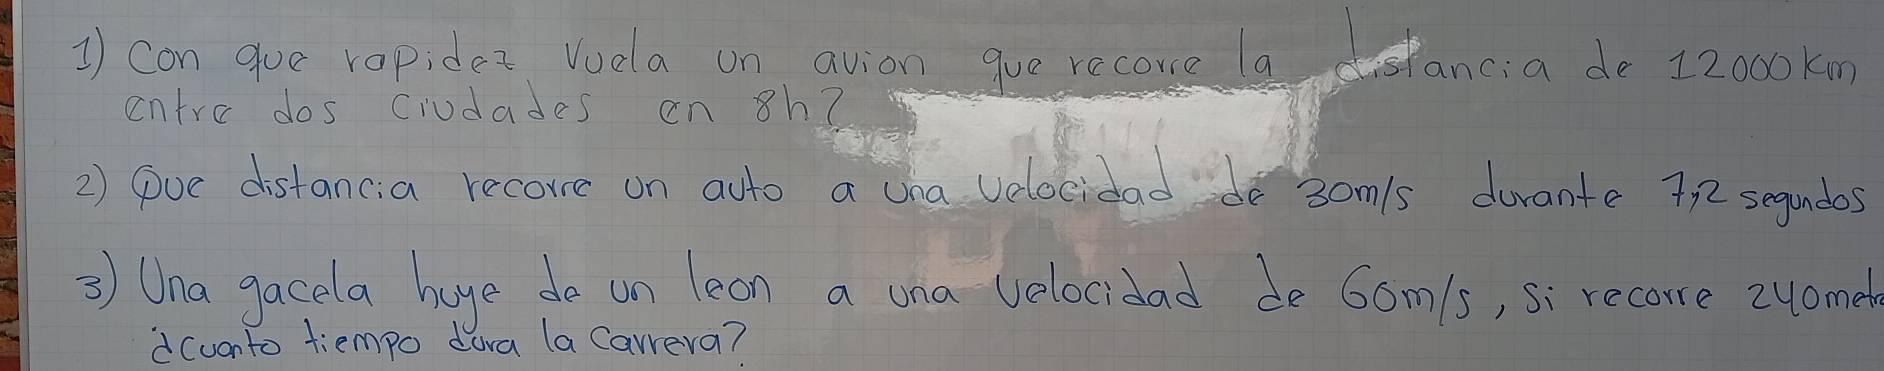 1) Con que rapidez Vuela un avion que recorre la distancia de 12000 km
entre dos ciudades en 8h?
2) Que distancia recorre un auto a una velocidad de 30m/s durante 7,2 segundos
3) Una gacela huye de un leon a una velocidad de 60m/s, si recorre 240metr
¿Cuanto tiempo dura la Carrera?